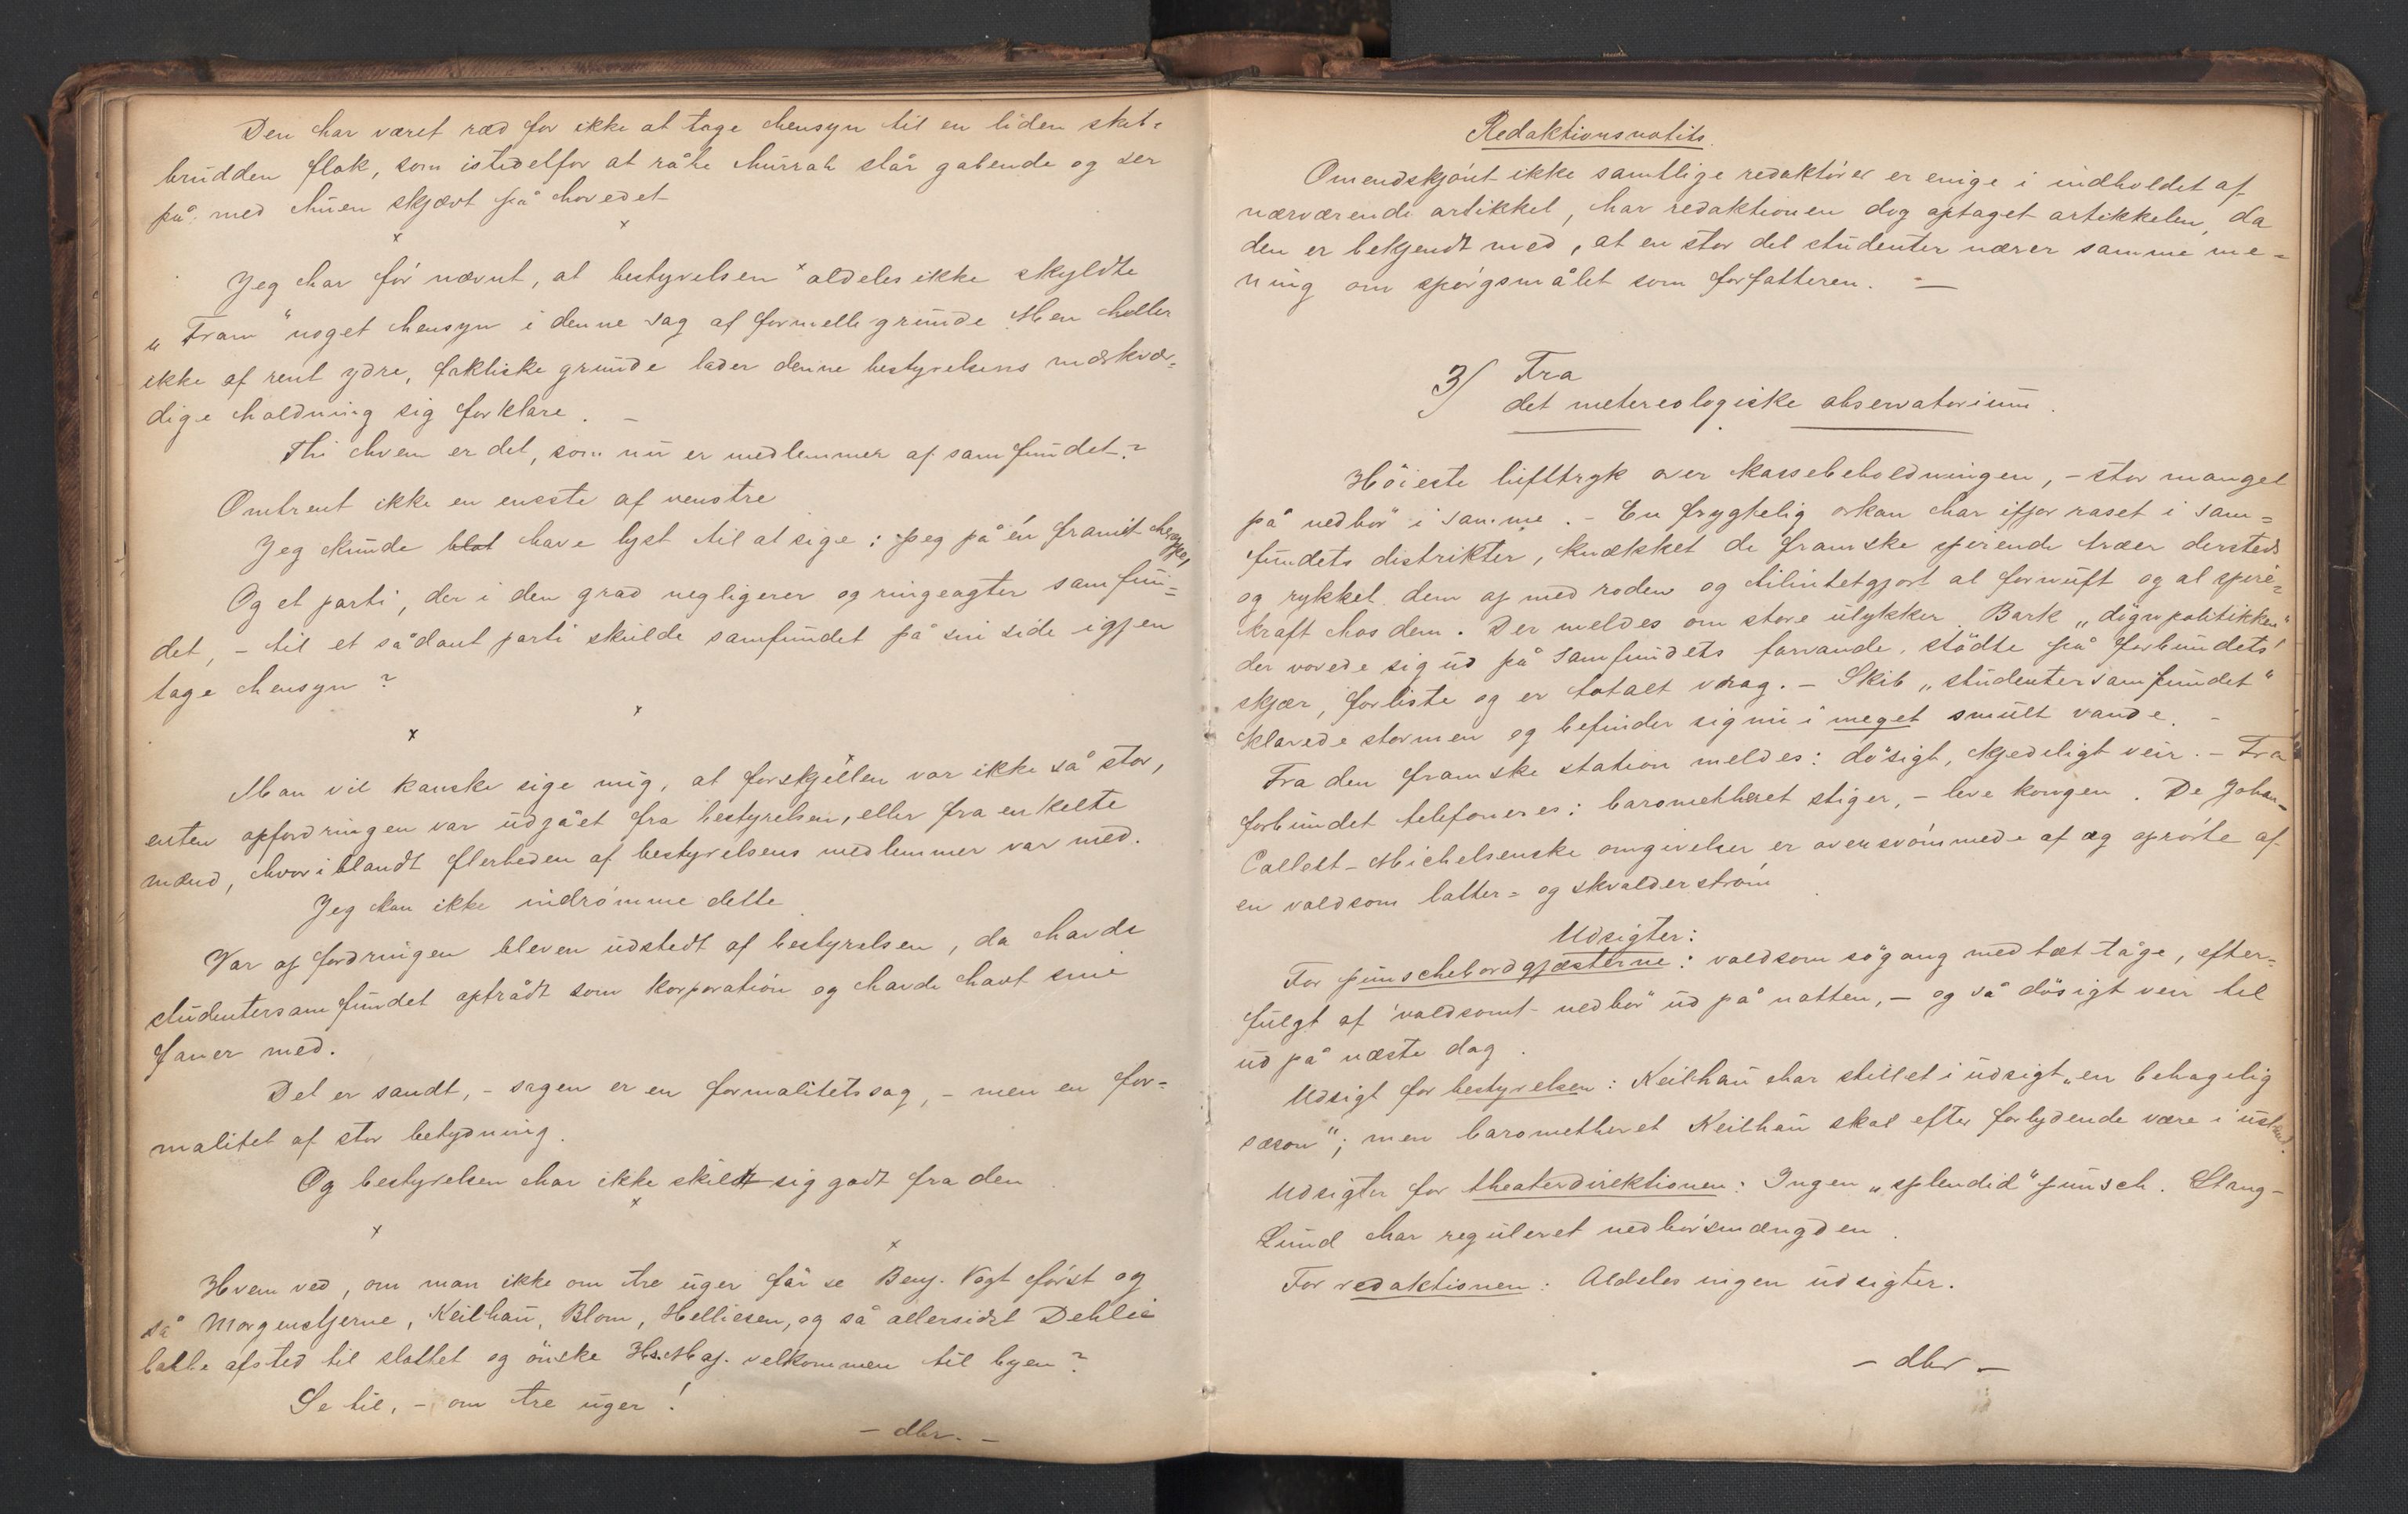 Den har været ræd for ikke at tage hensyn til en liden skib-
brudden flok, som istedetfor at råbe hurrah står gabende og ser
på med huen skjævt på hovedet
x x x
Jeg har før nævnt, at bestyrelsen aldeles ikke skyldte
„Fram" noget hensyn i denne sag af formelle grunde. Men heller
ikke af rent ydre, faktiske grunde lader denne bestyrelsens mærkvær-
dige holdning sig forklare. —
Thi hvem er det, som nu er medlemmer af samfundet?
Omtrent ikke en eneste af venstre
Jeg kunde blot have lyst til at sige: Peg på én framit
Og et parti, der i den grad negligerer og ringeagter samfun=
det, – til et sådant parti skulde samfundet på sin side igjen
tage hensyn?
x x x
Man vil kanske sige mig, at forskjellen var ikke så stor,
enten opfordringen var udgået fra bestyrelsen, eller fra enkelte
mænd, hvoriblandt flerheden af bestyrelsens medlemmer var med.
Jeg kan ikke indrømme dette
Var opfordringen bleven udstedt af bestyrelsen, da havde
studentersamfundet optrådt som korporation og havde havt sine
faner med.
Det er sandt, – sagen er en formalitetssag, – men en for=
malitet af stor betydning.
Og bestyrelsen har ikke skilt sig godt fra den.
x x x
Hvem ved, om man ikke om tre uger får se Benj. Vogt først og
så Morgenstjerne, Keilhau, Blom, Helliesen, og så allersidst Dehli
labbe afsted til slottet og ønske Hs. Maj. velkommen til byen?
Se til, – om tre uger!
— dbr. —
Redaktionsnotits.
Omendskjønt ikke samtlige redaktører er enige i indholdet af
nærværende artikkel, har redaktionen dog optaget artikkelen, da
den er bekjendt med, at en stor del studenter nærer samme me=
ning om spørgsmålet som forfatteren. —
3/ Fra
det metereologiske observatorium.
Höieste lufttryk over kassebeholdningen, – stor mangel
på nedbör i samme. – En frygtelig orkan har ifjor raset i sam=
fundets distrikter, knækket de framske spirende træer dersteds
og rykket dem op med roden og tilintetgjort al fornuft og al spire=
kraft hos dem. Der meldes om store ulykker. Bark „dögnpolitikken"
der vovede sig ud på samfundets farvande, stödte på forbundets
skjær, forliste og er totalt vrag. – Skib „studentersamfundet"
klarede stormen og befinder sig nu i meget smult vande. –
Fra den framske station meldes: dösigt, kjedeligt veir. – Fra
forbundet telefoneres: baromethret stiger, – leve kongen. De Johan-
Collett-Michelsenske omgivelser er oversvömmede af og oprørte af
en voldsom latter- og skvalderström.
Udsigter:
For punschebordgjæsterne: voldsom sögang med tæt tåge, efter=
fulgt af voldsomt nedbör ud på natten, – og så dösigt veir til
ud på næste dag.
Udsigt for bestyrelsen: Keilhau har stillet i udsigt „en behagelig
sæson"; men barometheret Keilhau skal efter forlydende være i ustand.
Udsigter for theaterdirektionen: Ingen „splendid" punsch. Stang-
Lund har reguleret nedbörsmængden.
For redaktionen: Aldeles ingen udsigter.
— dbr —